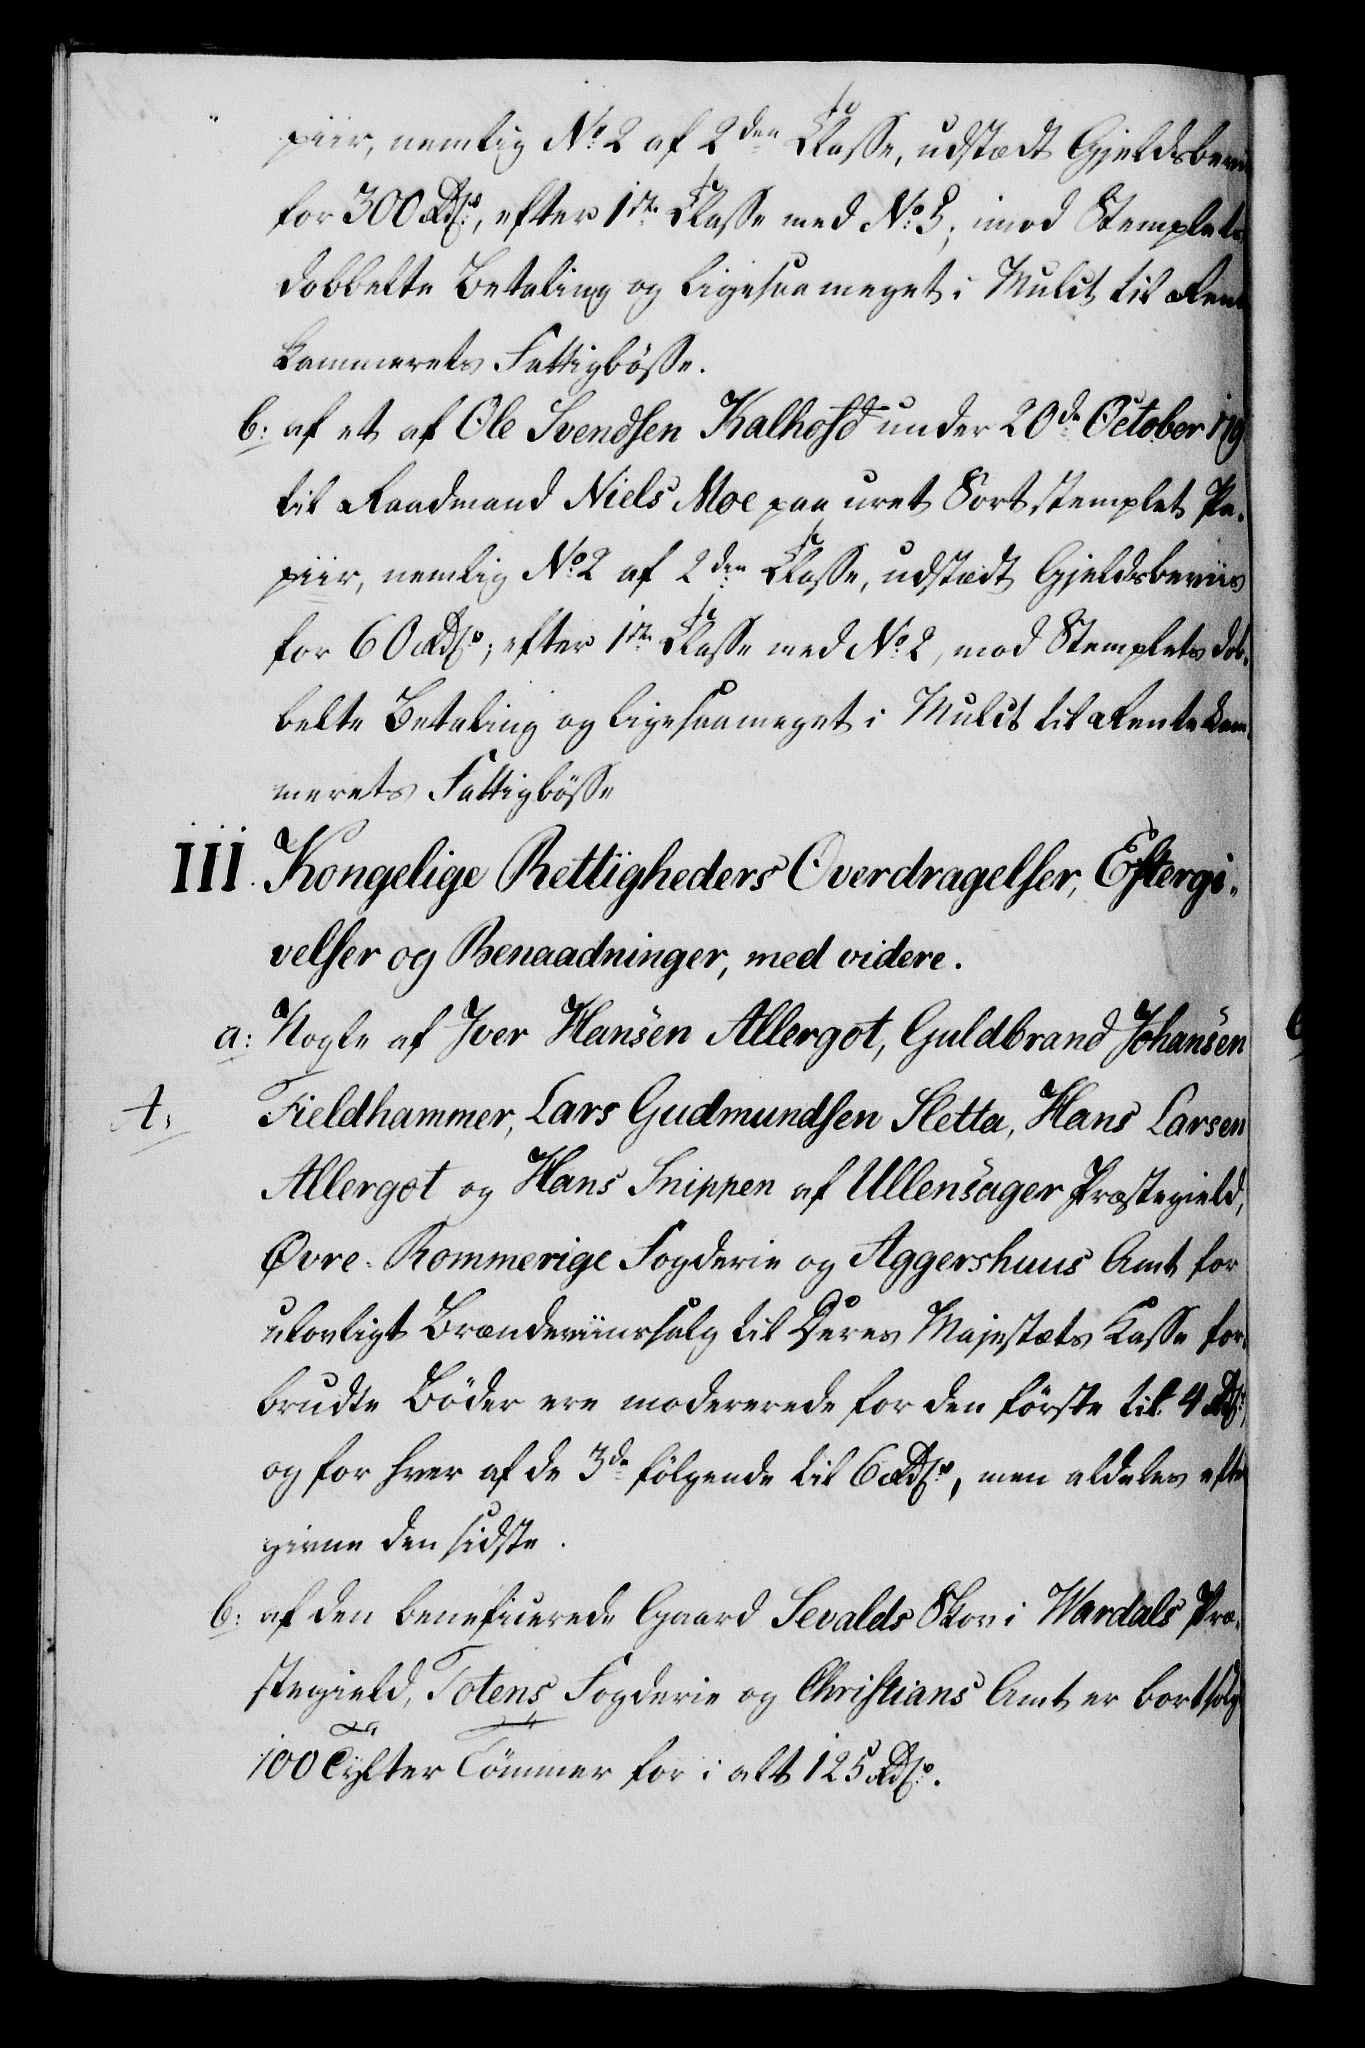 piir, nemlig No. 2 af 2den Classe, udstædt Gjeldsbevii
for 300 Rdlr., efter 1ste Classe med No. 5, imod Stemplets
dobbelte Betaling og ligesaameget i Mulct til Rente
kammerets Fattigbösse.
b: af et af Ole Svendsen Kalhofd under 20de October 179
til Raadmand Niels Moe paa uret Sort stemplet Pa-
piir, nemlig No. 2 af 2den Classe, udstædt Gjeldsbeviis
for 60 Rdlr.; efter 1ste Classe med No. 2, mod Stemplets dob-
belte Betaling og ligesaameget i Mulct til Rentekam-
merets Fattigbösse
III. Kongelige Rettigheders Overdragelser, Eftergi-
velser og Benaadninger, med videre.
a: Nogle af Iver Hansen Allergot, Guldbrand Johansen
A. Fieldhammer, Lars Gudmundsen Sletta, Hans Larsen
Allergot og Hans Snippen af Ullensager Præstegield,
Øvre-Rommerige Fogderie og Aggershuus Amt for
ulovligt Brændeviinssalg til Deres Majestæts Kasse for-
brudte Böder ere modererede for den förste til 4 Rdlr.,
og for hver af de 3de fölgende til 6 Rdlr., men aldeles efter
givne den sidste.
b: af den beneficerede Gaard Sevalds Skov i Wardals Præ-
stegield, Totens Fogderie og Christians Amt er bortsolgt
100 Tylter Tömmer for i alt 125 Rdlr.